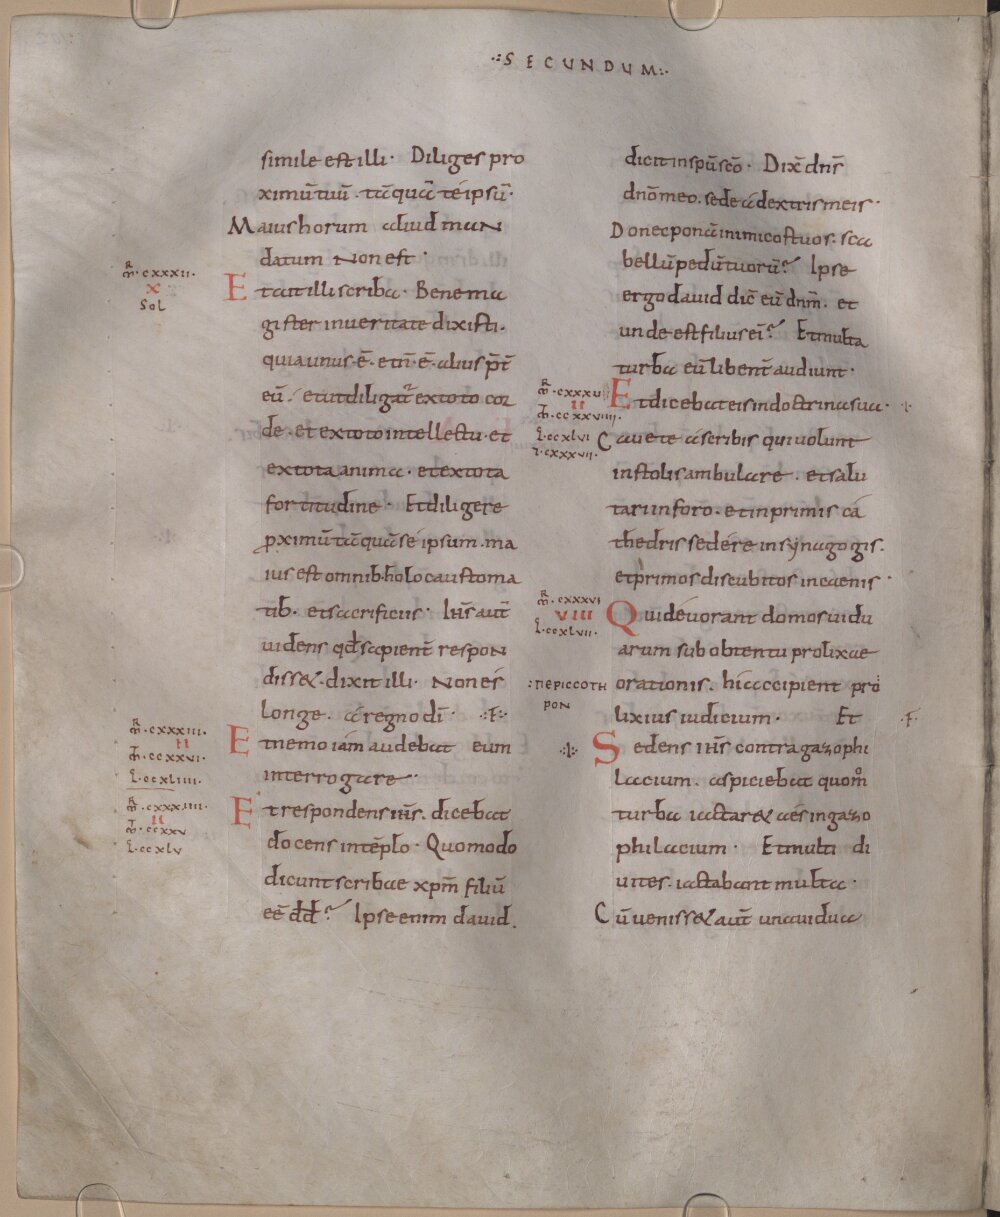 ·:SECUNDUM:·
simile est illi· Diliges pro
ximū tuū · tāquā te ipsū·
Maius horum aliud man
datum Non est ·
R̄ m̄·cxxxii.
x
Sol
Et ait illi scriba· Bene ma
gister in ueritate dixisti·
quia unus·ē· et n̄·ē·alius p̄t̄
eū· et ut diligat̄ ex toto cor
de·et ex toto intellectu·et
ex tota anima·et ex tota
fortitudine· Et diligere
proximū tāquā se ipsum·ma
ius est omnib· holocaustoma
tib· et sacrificiis· Ih̄s aut̄
uidens qđ sapient̄ respon
diss&·dixit illi· Non es
longe· a regno dī· ·:F:·
R̄ m̄·cxxxiii.
ii
m̄·ccxxvi.
l·ccxliiii.
Et nemo iam audebat eum
interrogare·
m̄·cxxxiiii.
ii
m̄·ccxxv
l·ccxlv
Et respondens ih̄s· dicebat
docens in tēplo· Quomodo
dicunt scribae xp̄m filiū
eē dđ? Ipse enim dauid·
dicit in sp̄u scō· Dix̄ dn̄s
dn̄o meo·sede a dextris meis·
Donec ponā inimicos tuos·sca
bellū pedū tuorū? Ipse
ergo dauid dic̄ eū dn̄m· et
unde est filius eī? Et multa
turba eū libent̄ audiunt·
m̄·cxxxv
ii
m̄·ccxxviiii.
l·ccxlvi
i·cxxxvii.
Et dicebat eis in doctrina sua·
Cauete a scribis qui uolunt
in stolis ambulare· et salu
tari in foro·et in primis ca
thedris sedere in synagogis·
et primos discubitos in caenis·
m̄·cxxxvi
viii
l·ccxlvii·
Qui deuorant domos uidu
arum sub obtentu prolixae
:περιccοτη
ρον
orationis· hi accipient pro
lixius iudicium· Et ·F·
Sedens ih̄s contra gazophi
lacium· aspiciebat quom̊
turba iactar& aes in gazo
philacium· Et multi di
uites·iactabant multa·
Cū uenisset aut̄ una uidua